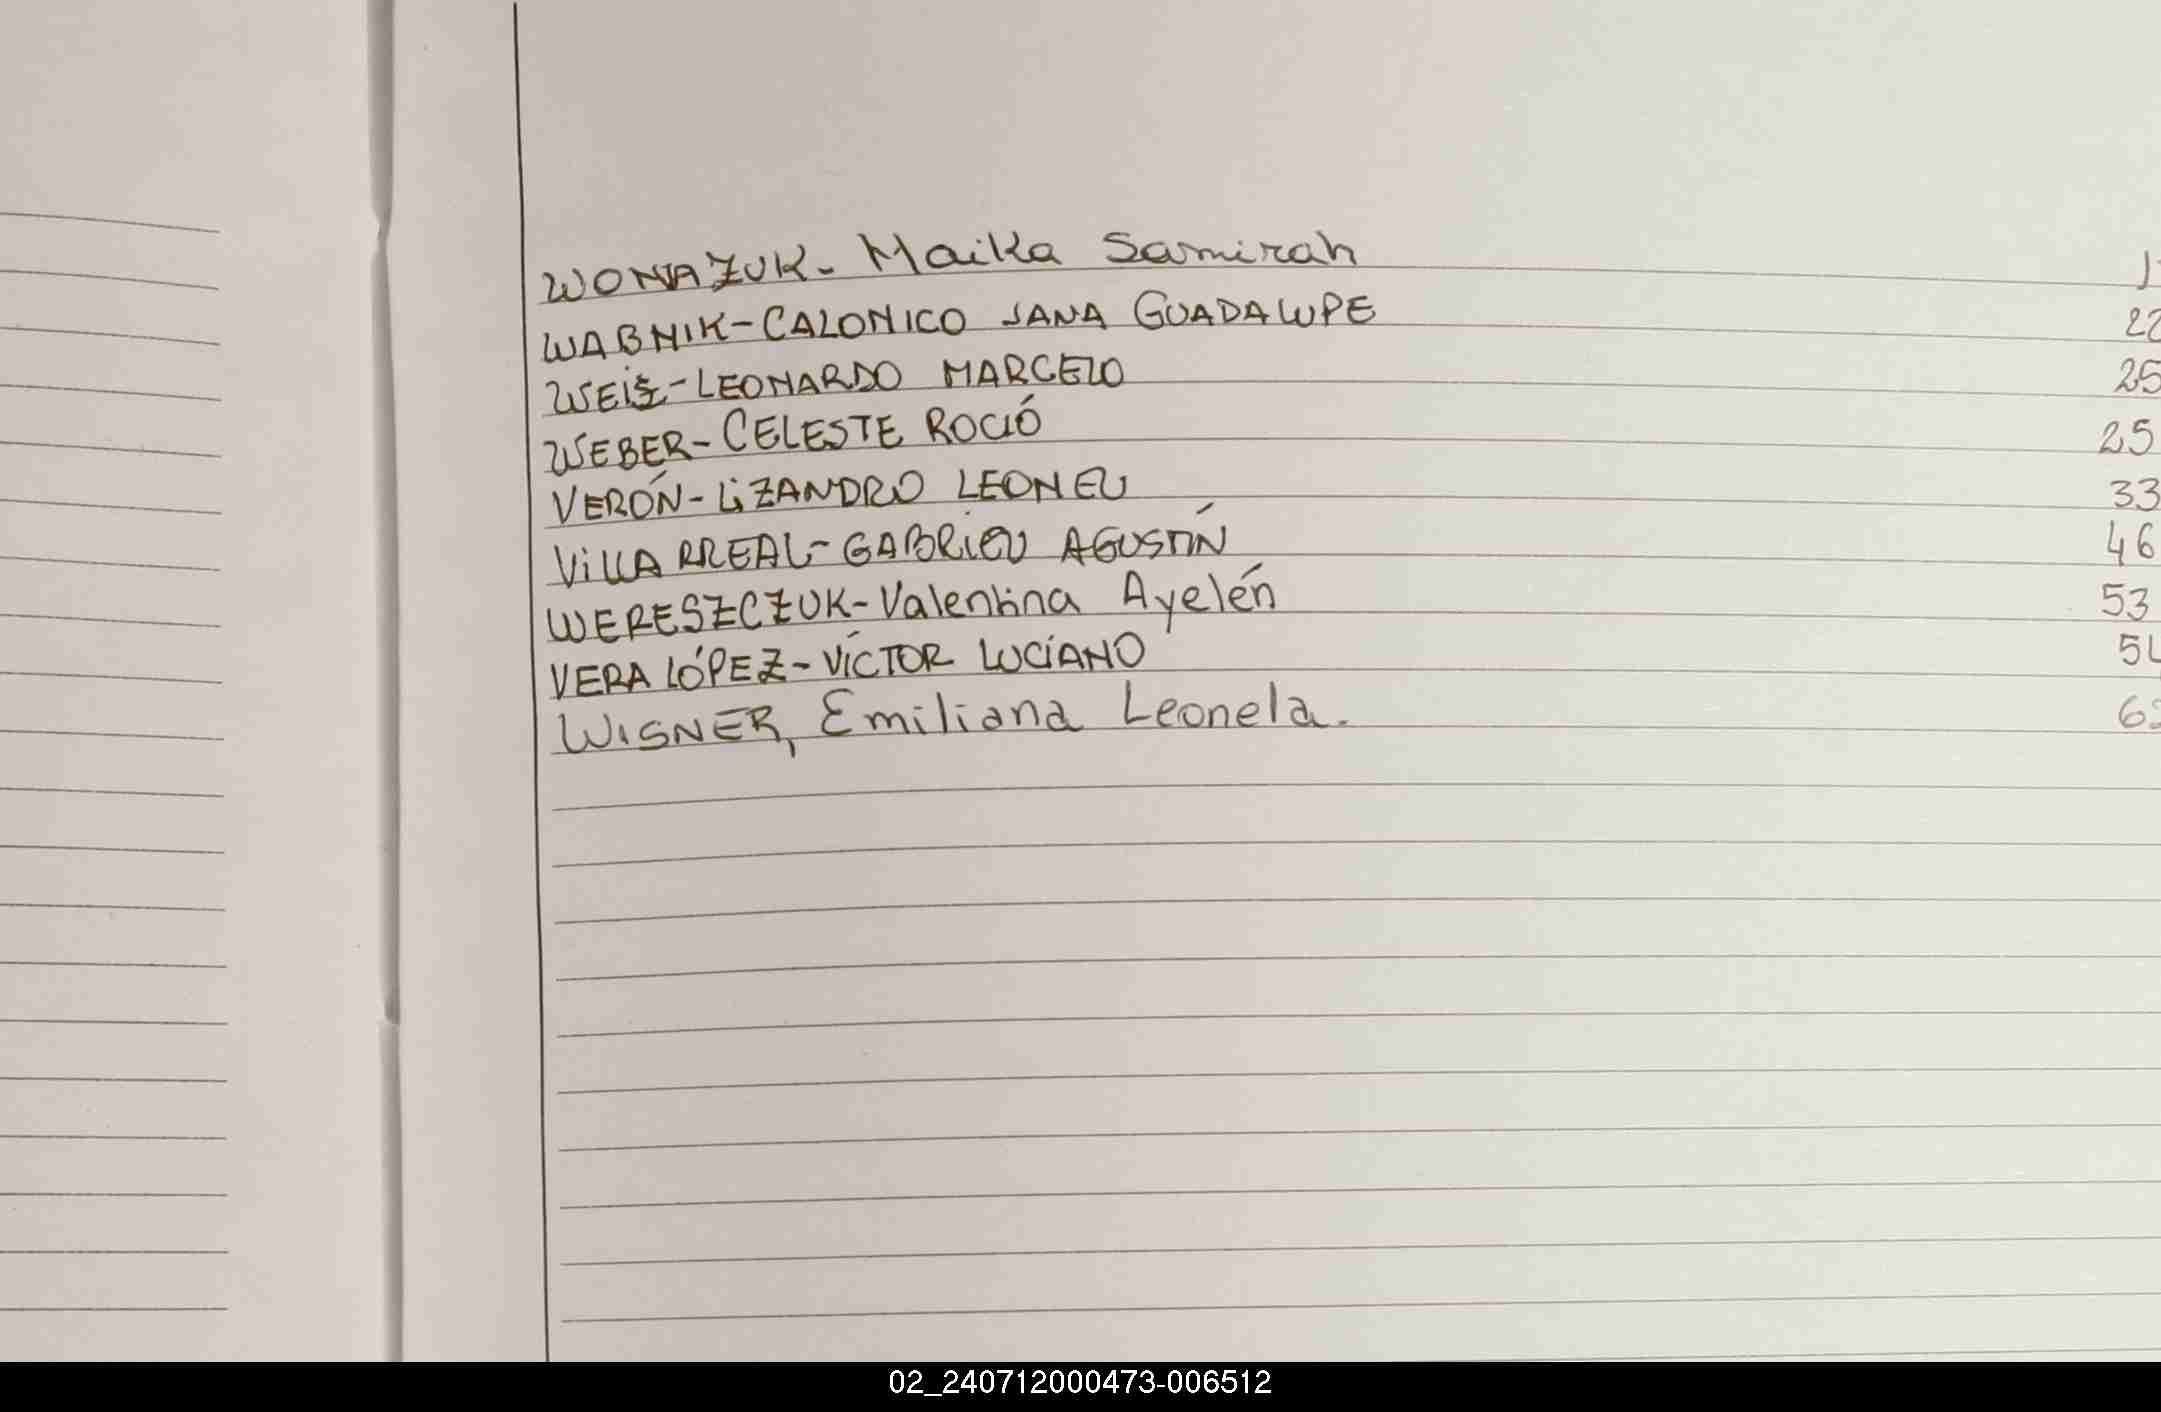 WONIAZUK- Maika Samirah
WABNIK-CALONICO JANA GUADALUPE 22
WEIS-LEONARDO MARCELO 25
WEBER-CELESTE ROCIÓ 25
VERÓN-LIZANDRO LEONEL 33
VILLARREAL-GABRIEL AGUSTÍN 46
WERESZCZUK-Valentina Ayelén 53
VERA LÓPEZ-VÍCTOR LUCIANO
WISNER, Emiliana Leonela.
02_240712000473-006512